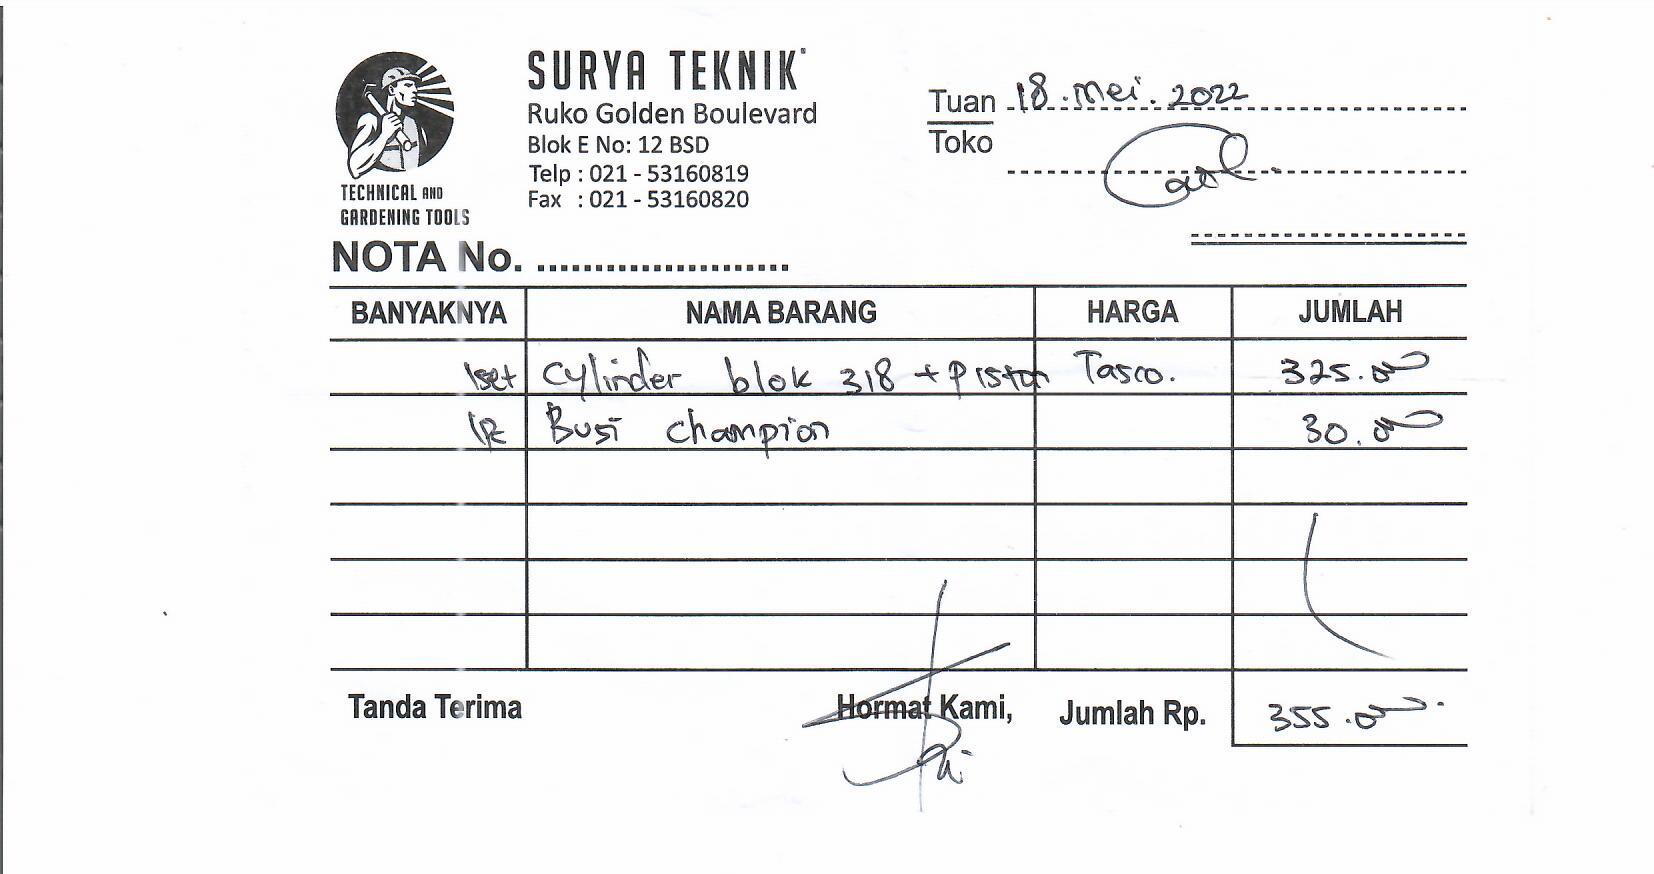 SURYA TEKNIK
Ruko Golden Boulevard
Blok E No: 12 BSD
Telp : 021 - 53160819
Fax : 021 - 53160820
TECHNICAL AND
GARDENING TOOLS
Tuan 18. Mei. 2022
Toko
NOTA No. ......................
BANYAKNYA NAMA BARANG HARGA JUMLAH
1set Cylinder blok 318 + Piston Tasco. 325.000
Busi Champion 30.000
Tanda Terima Hormat Kami, Jumlah Rp. 355.000